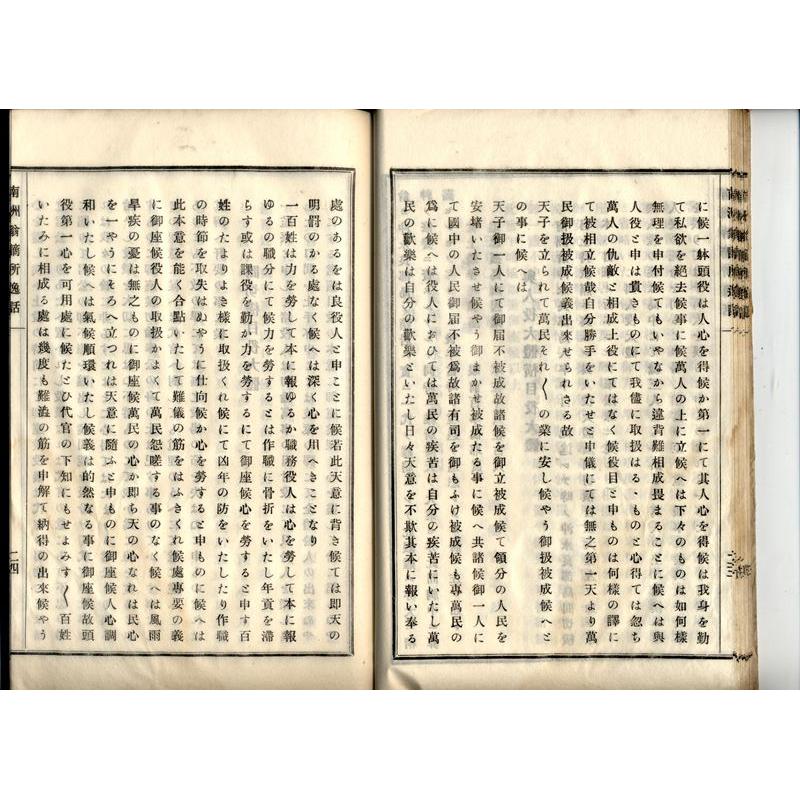 に候一躰頭役は人心を得候か第一にて其人心を得候は我身を勤
て私欲を絶去候事に候萬人の上に立候へは下々のものは如何樣
無理を申付候てもいやなから違背難相成畏まることに候へは與
人役と申は貴きものにて我儘に取扱はるゝものと心得ては忽ち
萬人の仇敵と相成上役にてはなく候役目と申ものは何樣の譯に
て被相立候哉自分勝手をいたせと申儀にては無之第一天より萬
民御扱被成候義出來せられさる故
天子を立られて萬民それ〱の業に安し候やう御扱被成候へと
の事に候へは
天子御一人にて御届不被成故諸候を御立被成候て領分の人民を
安堵いたさせ候やう御まかせ被成たる事に候へ共諸候御一人に
て國中の人民御届不被爲故諸有司を御もふけ被成候も專萬民の
爲に候へは役人におひては萬民の疾苦は自分の疾苦にいたし萬
民の歡樂は自分の歡樂といたし日々天意を不欺其本に報い奉る
處のあるをは良役人と申ことに候若此天意に背き候ては即天の
明罰のかる處なく候へは深く心を用へきことなり
一百姓は力を勞して本に報ゆるか職務役人は心を勞して本に報
ゆるの職分にて候力を勞するとは作職に骨折をいたし年貢を滯
らす或は課役を勤か力を勞するにて御座候心を勞すると申す百
姓のたよりよき樣に取扱くれ候にて凶年の防をいたしたり作職
の時節を取失はぬやうに仕向候か心を勞すると申ものに候へは
此本意を能く合點いたして難儀の筋をはふきくれ候處專要の義
に御座候役人の取扱かよくて萬民怨嗟する事のなく候へは風雨
旱疾の憂は無之ものに御座候萬民の心か即ち天の心なれは民心
を一やうにそろへ立つれは天意に隨ふと申ものに御座候人心調
和いたし候へは氣候順環いたし候義は的然なる事に御座候故頭
役第一心を可用處に候たとひ代官の下知にもせよみす〱百姓
いたみに相成る處は幾度も難澁の筋を申解て納得の出來候やう
南洲翁謫所逸話
二四